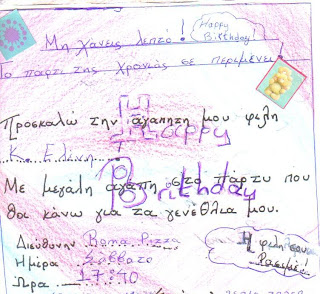 Μη χάνεις λεπτό!
Happy Birthday!
Το πάρτι της χρονιάς σε περιμένει!
Προσκαλώ την αγαπητη μου φιλη
Happy
Κ. Ελένη
Birthday
Με μεγάλη αγάπη στο πάρτυ που
θα κάνω για τα γενέθλια μου.
Διευθύνην Roma Pizza
Η φίλη σου
Ημέρα Σάββατο
Ώρα 17:40